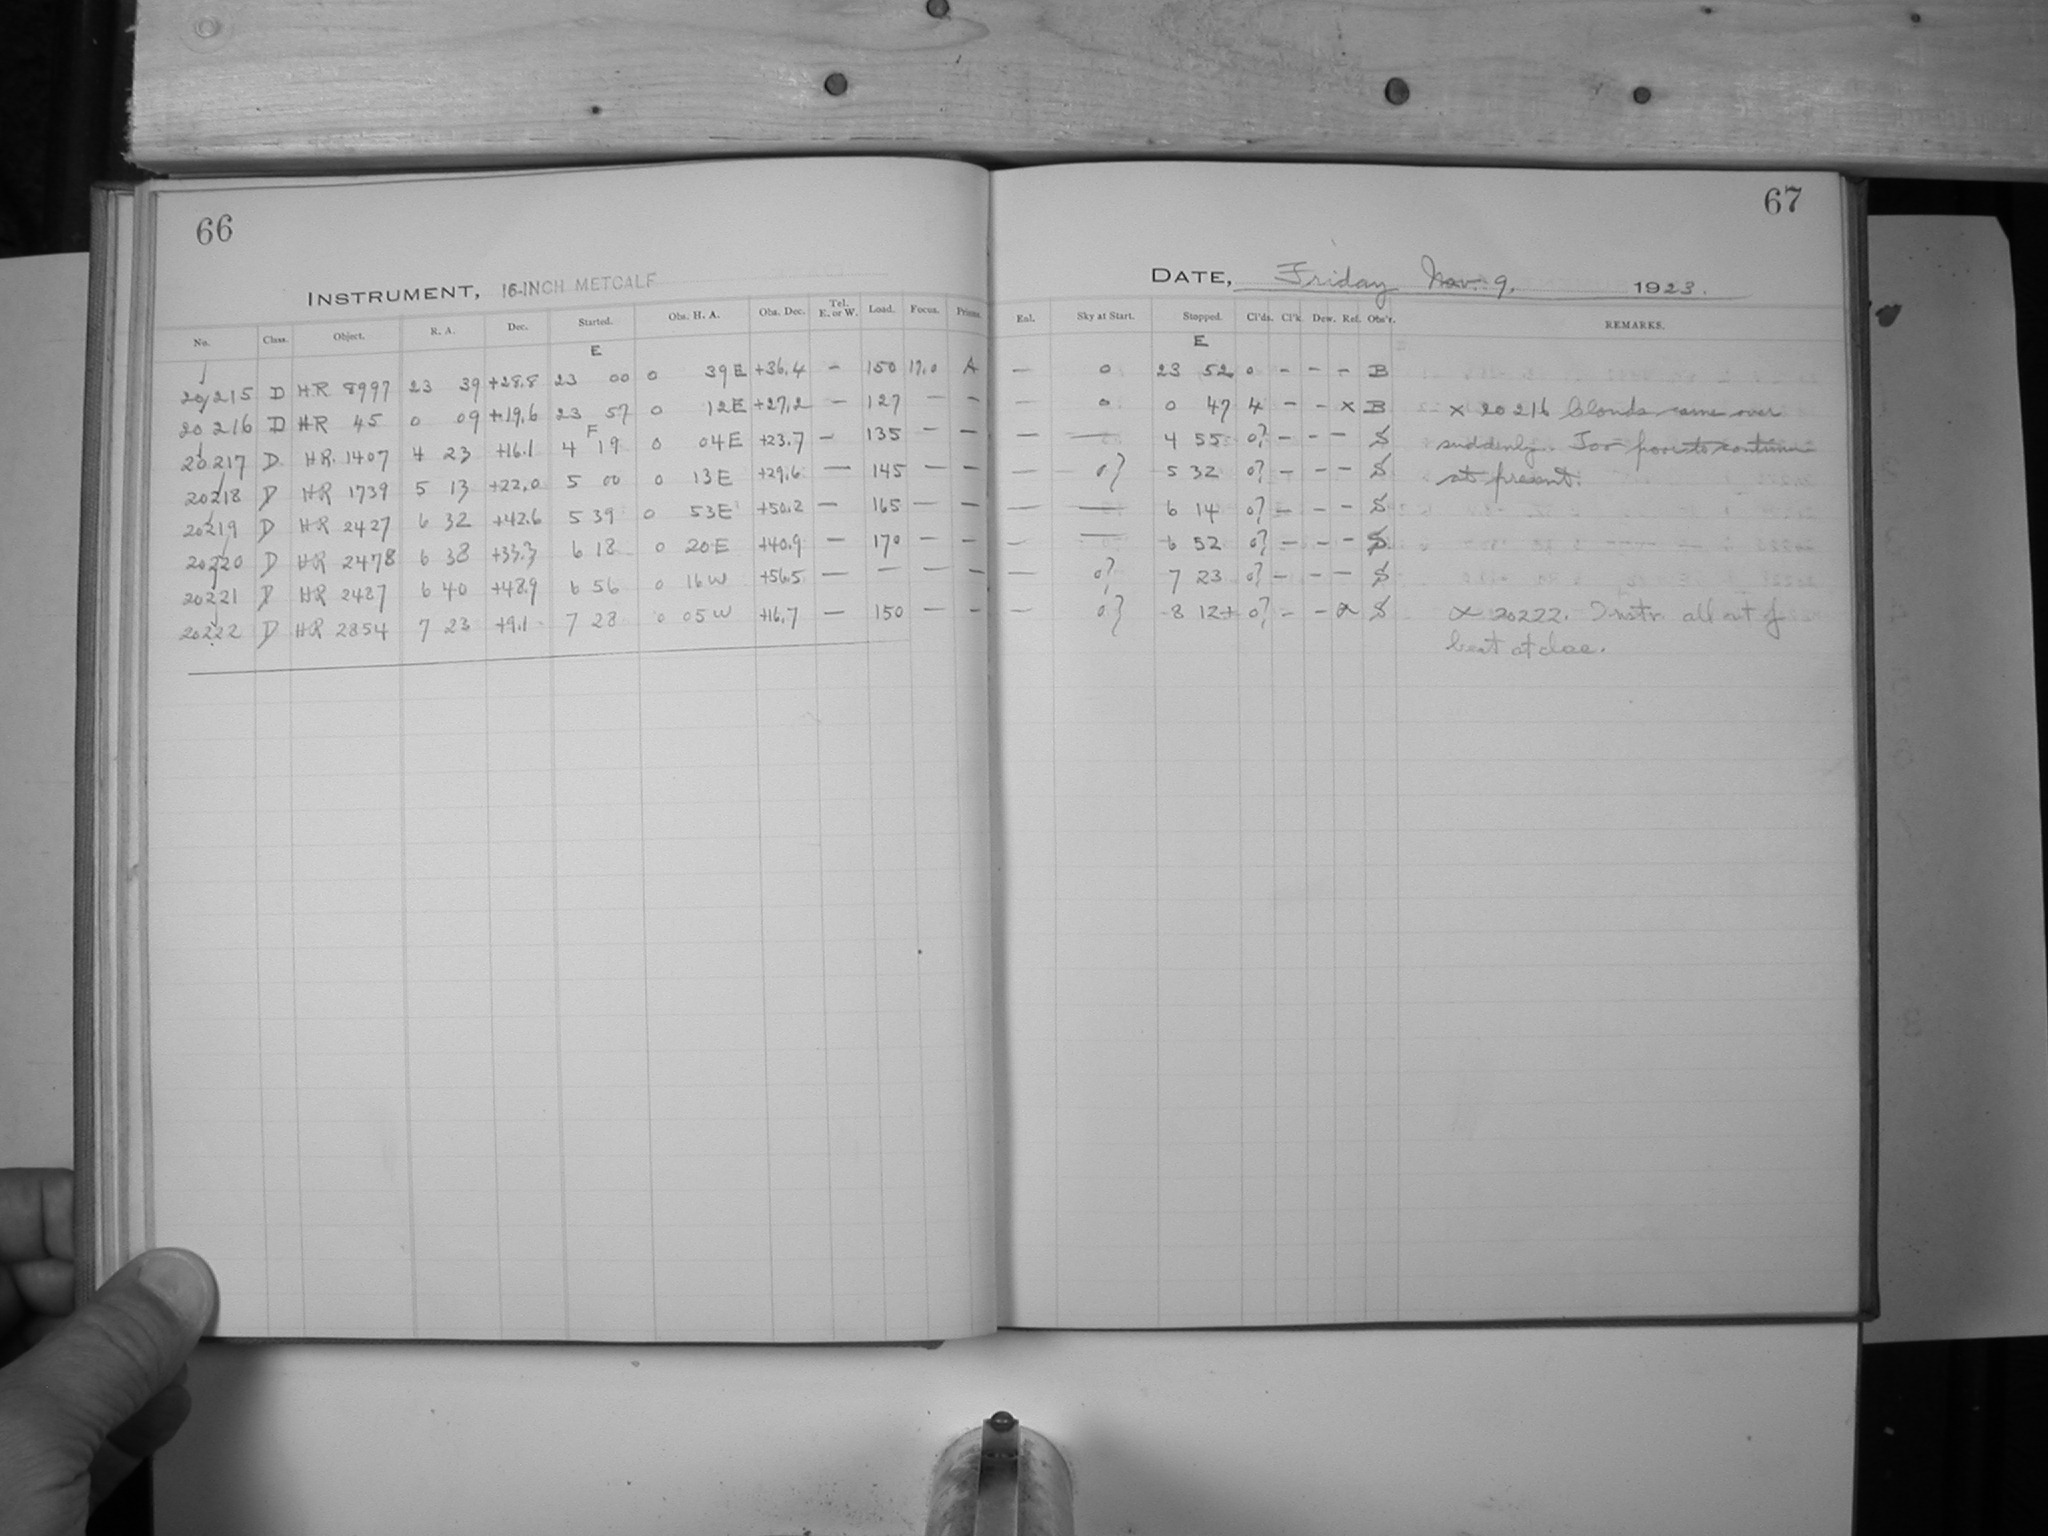 66
INSTRUMENT, 16-INCH METCALF
No. Class. Object. R. A. Dec. Started. Obs. H. A. Obs. Dec. Tel. E. or W. Load. Focus. Prisms.
E
20215 D HR 8997 23 39 +28.8 23 00 0 39E +36.4 - 150 17.0 A
20216 D HR 45 0 09 +19.6 23 57 0 12E +27.2 - 127 - -
F
20217 D HR. 1407 4 23 +16.1 4 19 0 04E +23.7 - 135 - -
20218 D HR 1739 5 13 +22.0 5 00 0 13E +29.6 - 145 - -
20219 D HR 2427 6 32 +42.6 5 39 0 53E +50.2 - 165 - -
20220 D HR 2478 6 38 +33.3 6 18 0 20E +40.9 - 170 - -
20221 D HR 2487 6 40 +48.9 6 56 0 16W +56.5 - - - -
20222 D HR 2854 7 23 +9.1 7 28 0 05W +16.7 - 150 - -
67
DATE, Friday Nov. 9. 1923.
Enl. Sky at Start. Stopped. Cl'ds. Cl'k Dew. Ref. Obs'r. REMARKS.
E
- 0 23 52 0 - - - B
- 0 0 47 4 - - x B x 20216 Clouds came over
- - 4 55 0? - - - S suddenly. Too poor to continue
- 0? 5 32 0? - - - S at present.
- - 6 14 0? - - - S
- - 6 52 0? - - - S
- 0? 7 23 0? - - - S
- 0? 8 12+ 0? - - α S α 20222. Instr. all out of
beat at close.